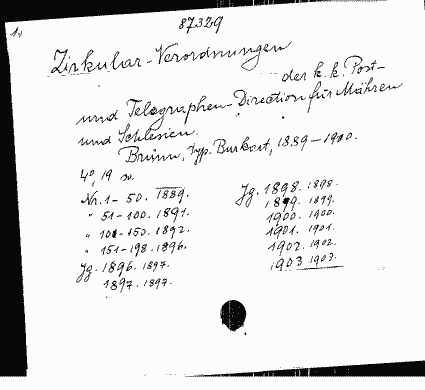 1v
87329
Zirkular-Verordnungen
der k. k. Post-
und Telegraphen-Direction für Mähren
und Schlesien.
Brünn, typ. Burkart, 1889-1900.
4°, 19 w.
Nr. 1-50. 1889.
" 51-100. 1891.
" 101-150. 1892.
" 151-198. 1896.
Jg. 1896. 1897.
1897. 1897.
Jg. 1898. 1898.
1899. 1899.
1900. 1900.
1901. 1901.
1902. 1902.
1903. 1903.